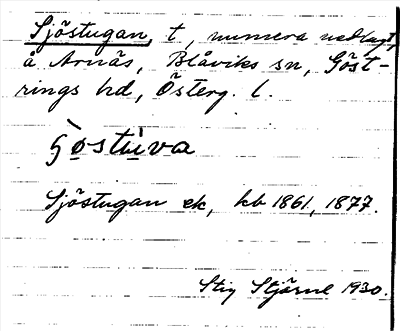 Sjöstugan, t, numera nedlagt,
å Arnäs, Blåviks sn, Göst-
rings hd, Österg. l.
ʃö̀stùva
Sjöstugan ek, hb 1861, 1877.
Stig Stjärne 1930.